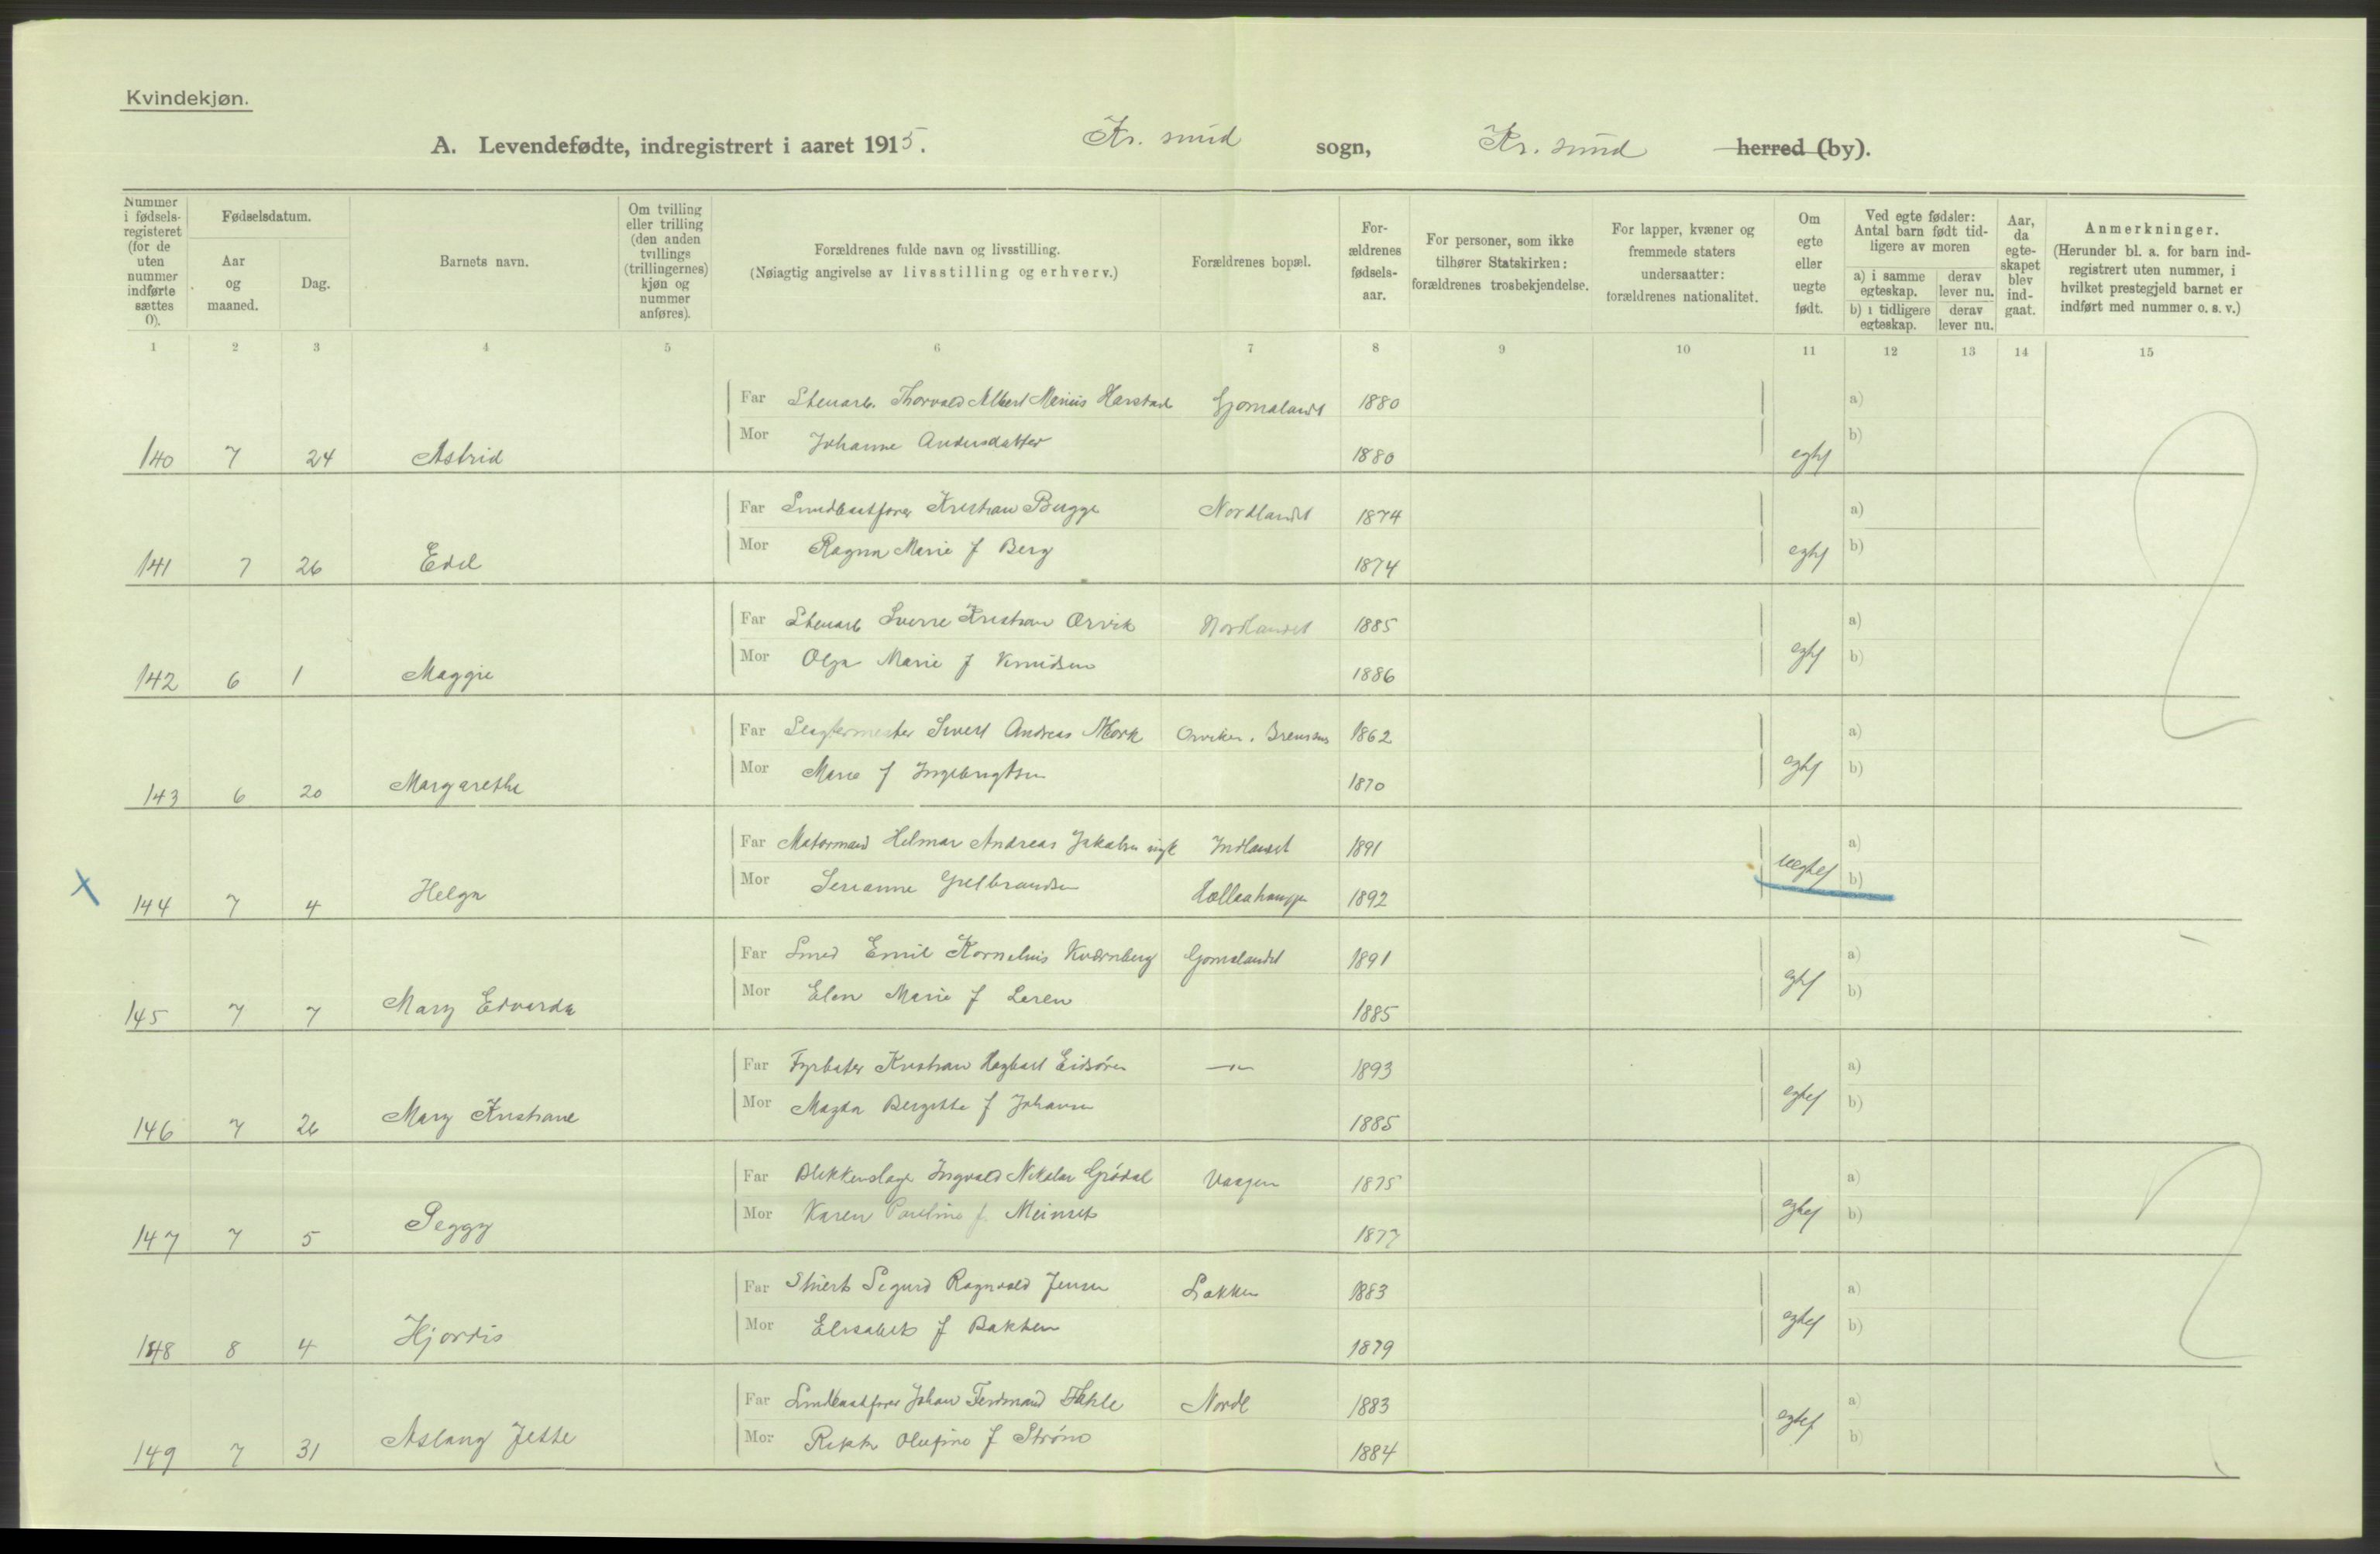 Kvindekjøn.
A. Levendefødte, indregistrert i aaret 1915. Kr. sund sogn, Kr. sund herred (by).
Nummer i fødsels-registeret (for de uten nummer indførte sættes 0).
Fødselsdatum.
Aar og maaned.
Dag.
Barnets navn.
Om tvilling eller trilling (den anden tvillings (trillingernes) kjøn og nummer anføres).
Forældrenes fulde navn og livsstilling.
(Nøiagtig angivelse av livsstilling og erhverv.)
Forældrenes bopæl.
For-ældrenes fødsels-aar.
For personer, som ikke tilhører Statskirken: forældrenes trosbekjendelse.
For lapper, kvæner og fremmede staters undersaatter: forældrenes nationalitet.
Om egte eller uegte født.
Ved egte fødsler: Antal barn født tid-ligere av moren
a) i samme egteskap.
derav lever nu.
b) i tidligere egteskap.
derav lever nu.
Aar, da egte-skapet blev ind-gaat.
Anmerkninger.
(Herunder bl. a. for barn ind-registrert uten nummer, i hvilket prestegjeld barnet er indført med nummer o. s. v.)
1 2 3 4 5 6 7 8 9 10 11 12 13 14 15
Far Stenarb. Thorvald Albert Marius Harstad Gomalandt 1880 a)
Mor Johanne Andersdatter b)
140 7 24 Astrid 1880 egtef
Far Kristian Bugge Nordlandet 1874 a)
Mor Ragna Marie f Berg b)
141 7 26 Edel 1874 egtef
Far Stenarb Sverre Kristian Orvik Nordlandet 1885 a)
Mor Olga Marie f Knudsen b)
142 6 1 Maggie 1886 egtef
Far Slagtermester Sivert Andreas Mork 1862 a)
Mor Marie f Ingebrigtsen b)
143 6 20 Margarethe 1870 egtef
Far Matormand Helmar Andreas Jakobsen Indlandet 1891 a)
Mor Serianne b)
X 144 7 4 Helga 1892 uegtef
Far Smed Emil Kornelius Kvernberg Gomalandet 1891 a)
Mor Elen Marie f Leren b)
145 7 7 Mary Edvarda 1885 egtef
Far Fyrbøter Kristian Hagbart Eidsøren —"— 1893 a)
Mor Magda Bergitte f Johansen b)
146 7 26 Mary Kristiane 1885 egtef
Far Blikkenslager Ingvald Nikolai Grødal Vaagen 1875 a)
Mor Karen Pauline f. Meinset b)
147 7 5 Peggy 1877 egtef
Far Sigurd Ragnvald Jensen Bakken 1883 a)
Mor Elisabet f Bakken b)
148 8 4 Hjordis 1879 egtef
Far Johan Ferdinand Nordl 1883 a)
Mor Olufine f Strøm b)
149 7 31 Aslaug Jette 1884 egtef